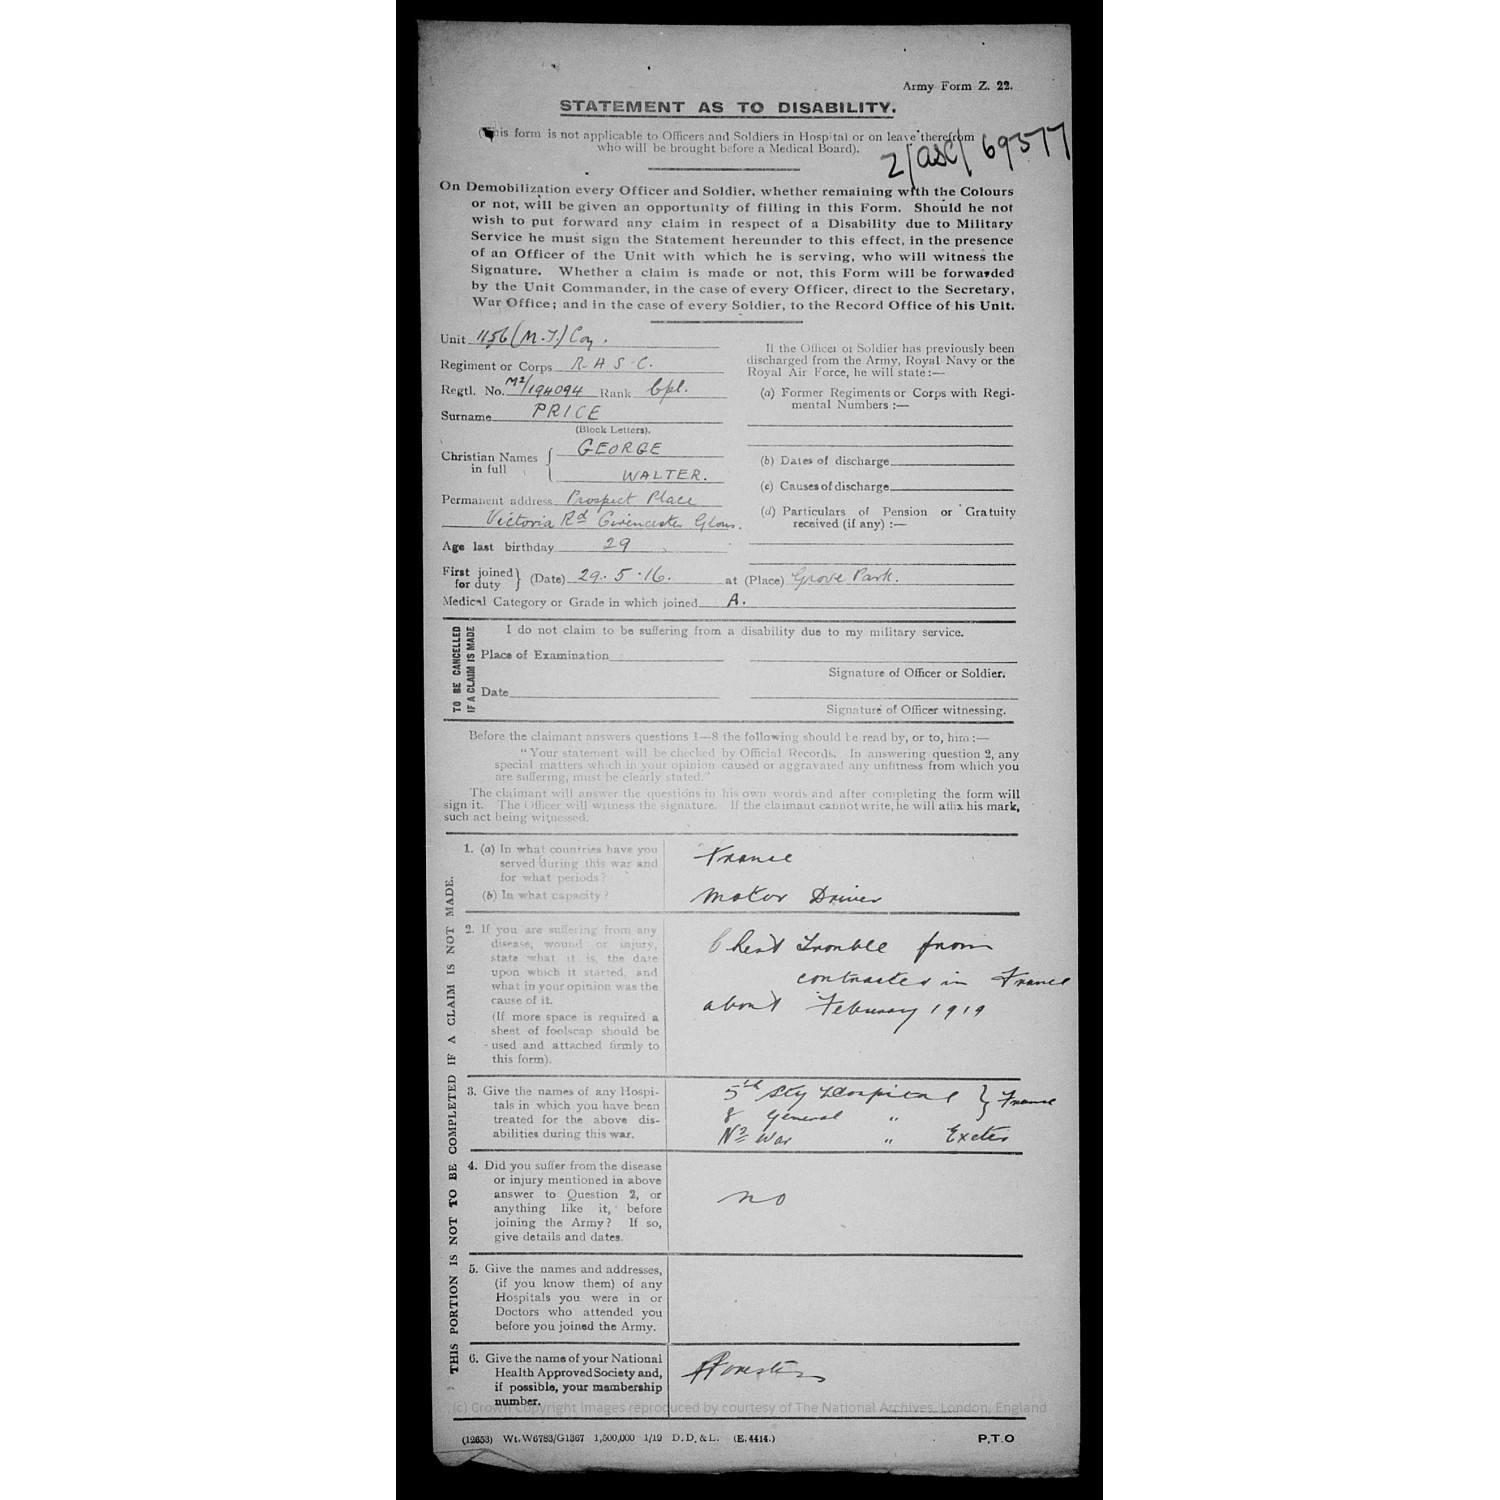 Army Form Z. 22.
STATEMENT AS TO DISABILITY.
(This form is not applicable to Officers and Soldiers in Hospital or on leave therefrom
who will be brought before a Medical Board).
2/ASC/69577
On Demobilization every Officer and Soldier, whether remaining with the Colours
or not, will be given an opportunity of filling in this Form. Should he not
wish to put forward any claim in respect of a Disability due to Military
Service he must sign the Statement hereunder to this effect, in the presence
of an Officer of the Unit with which he is serving, who will witness the
Signature. Whether a claim is made or not, this Form will be forwarded
by the Unit Commander, in the case of every Officer, direct to the Secretary,
War Office; and in the case of every Soldier, to the Record Office of his Unit.
Unit 1156 (M.T.) Coy.
Regiment or Corps R.A.S.C.
Regtl. No. M2/194094 Rank Cpl.
Surname PRICE
(Block Letters).
Christian Names in full { GEORGE
WALTER.
Permanent address Prospect Place
Victoria Rd Cirencester Glous.
Age last birthday 29
If the Officer or Soldier has previously been
discharged from the Army, Royal Navy or the
Royal Air Force, he will state:—
(a) Former Regiments or Corps with Regi-
mental Numbers :—
(b) Dates of discharge
(c) Causes of discharge
(d) Particulars of Pension or Gratuity
received (if any) :—
First joined for duty } (Date) 29.5.16. at (Place) Grove Park.
Medical Category or Grade in which joined A.
TO BE CANCELLED
IF A CLAIM IS MADE
I do not claim to be suffering from a disability due to my military service.
Place of Examination
Signature of Officer or Soldier.
Date
Signature of Officer witnessing.
Before the claimant answers questions 1—8 the following should be read by, or to, him:—
"Your statement will be checked by Official Records. In answering question 2, any
special matters which in your opinion caused or aggravated any unfitness from which you
are suffering, must be clearly stated."
The claimant will answer the questions in his own words and after completing the form will
sign it. The Officer will witness the signature. If the claimant cannot write, he will affix his mark,
such act being witnessed.
THIS PORTION IS NOT TO BE COMPLETED IF A CLAIM IS NOT MADE.
1. (a) In what countries have you
served during this war and
for what periods?
France
(b) In what capacity?
Motor Driver
2. If you are suffering from any
disease, wound or injury,
state what it is, the date
upon which it started, and
what in your opinion was the
cause of it.
(If more space is required a
sheet of foolscap should be
used and attached firmly to
this form).
Chest Trouble from
contracted in France
about February 1919
3. Give the names of any Hospi-
tals in which you have been
treated for the above dis-
abilities during this war.
5th Sty Hospital } France
8 General "
No 2 War " Exeter
4. Did you suffer from the disease
or injury mentioned in above
answer to Question 2, or
anything like it, before
joining the Army? If so,
give details and dates.
no
5. Give the names and addresses,
(if you know them) of any
Hospitals you were in or
Doctors who attended you
before you joined the Army.
6. Give the name of your National
Health Approved Society and,
if possible, your membership
number.
Foresters
(c) Crown Copyright Images reproduced by courtesy of The National Archives, London, England
(12653) Wt. W6783/G1367 1,500,000 1/19 D. D. & L. (E. 4414.)
P.T.O